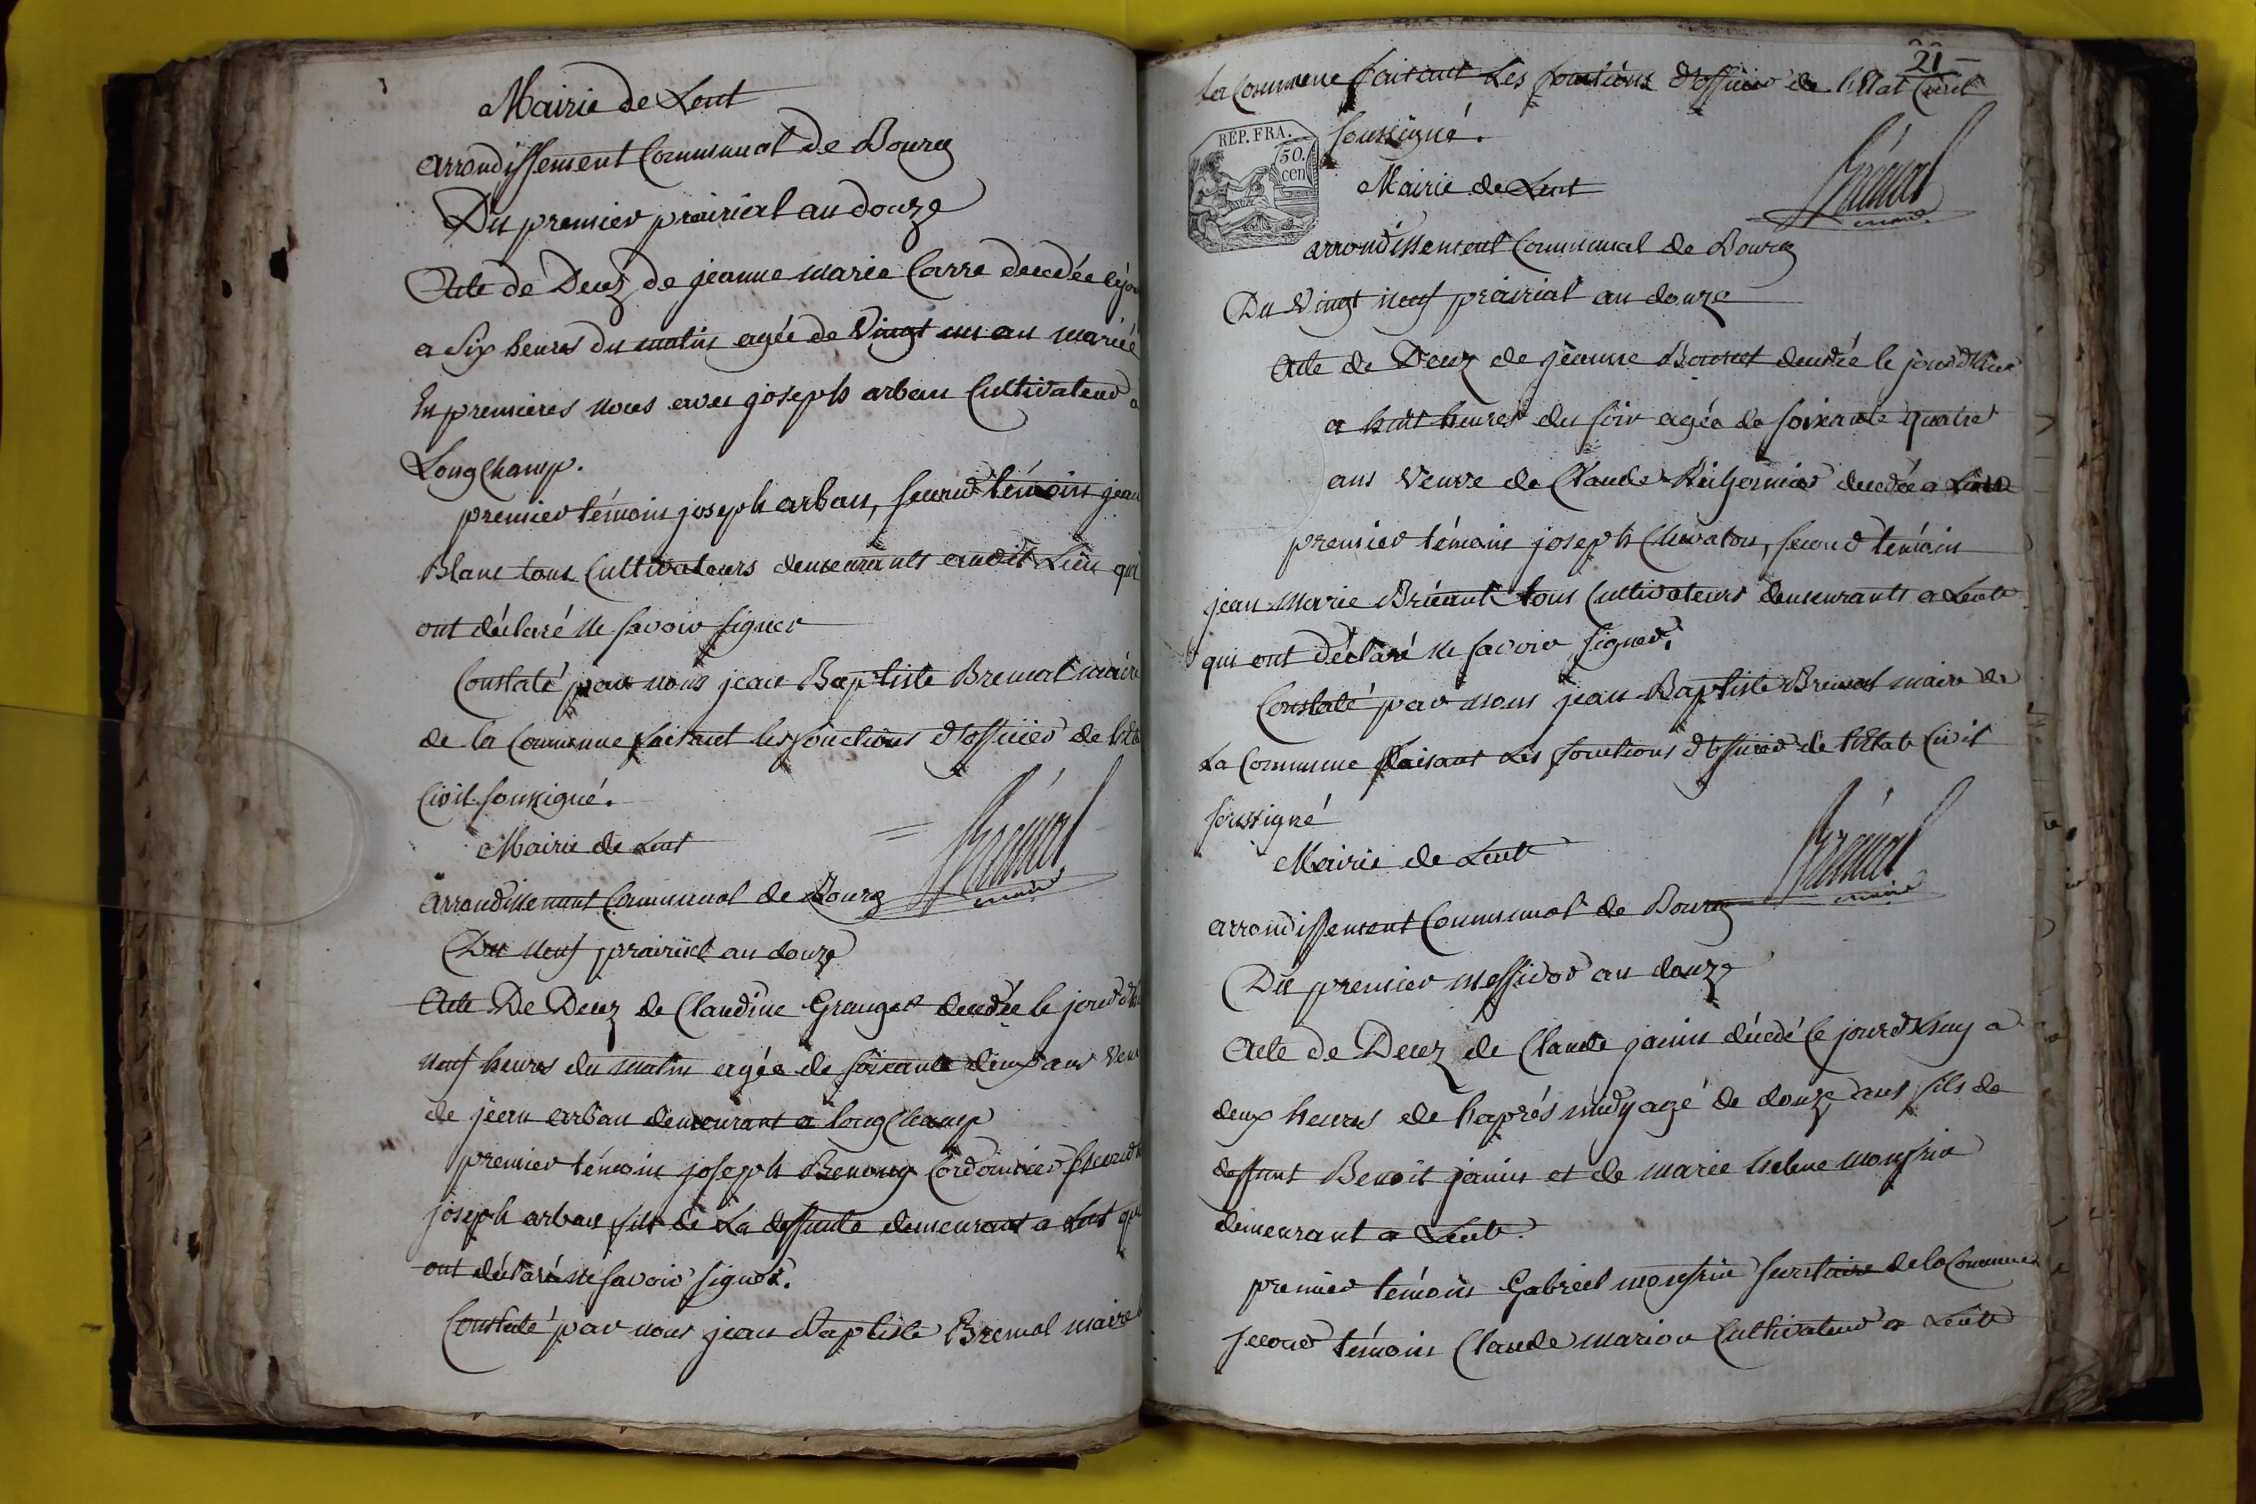 Mairie de Lent
arrondissement Communal de Bourg
Du premier prairial an douze
Acte de Decez de jeanne marie Carre decedée
a Six heures du matin agée de Vingt un an mariée
En premieres noces avec joseph arban Cultivateur a
LongChamp.
premier témoin joseph arban, second témoin jean
Blanc tous Cultivateurs demeurants audit Lieu qui
ont déclaré ne savoir signer
Constaté par nous jean Baptiste Brenal maire
de la Commune faisant les fonctions d'officier de
Civil soussigné.
Mairie de Lent
Brénal
maire
arrondissement Communal de Bourg
Du neuf prairial an douze
Acte De Decez de Claudine Granget decedée le jour
neuf heures du matin agée de soixante deux ans
de jean arban demeurant a longChamp
premier témoin joseph Cordonnier second
joseph arban fils de La deffunte demeurant a Lent qui
ont déclaré ne savoir signer.
Constaté par nous jean Baptiste Brenal maire
21
la Commune faisant Les fonctions d'officier de l'Etat Civil
REP. FRA.
50.
cen
soussigné.
Brénal
maire
Mairie de Lent
arrondissement Communal de Bourg
Du Vingt neuf prairial an douze
Acte de Decez de jeanne decedée le jour d'hier
a huit heures du soir agée de soixante quatre
ans Veuve de Claude decedée a Lent
premier témoin joseph Chevaton, second témoin
jean Marie tous Cultivateurs demeurants a Lent
qui ont déclaré ne savoir signer.
Constaté par nous jean Baptiste Brenal maire de
La Commune faisant Les fonctions d'officier de l'Etat Civil
soussigné
Brénal
maire
Mairie de Lent
arrondissement Communal de Bourg
Du premier messidor an douze
Acte de Decez de Claude janin décedé le jourd'huy a
deux heures de l'aprés midy agé de douze ans fils de
deffunt Benoit janin et de marie helene monfrin
demeurant a Lent.
premier témoin Gabriel monfrin secretaire de la Commune
second témoin Claude marion Cultivateur a Lent